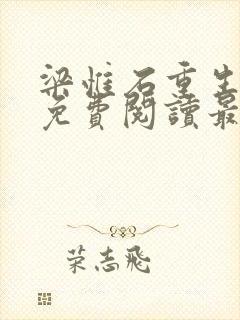 梁惟石重生
免費閱讀最
荣志飛